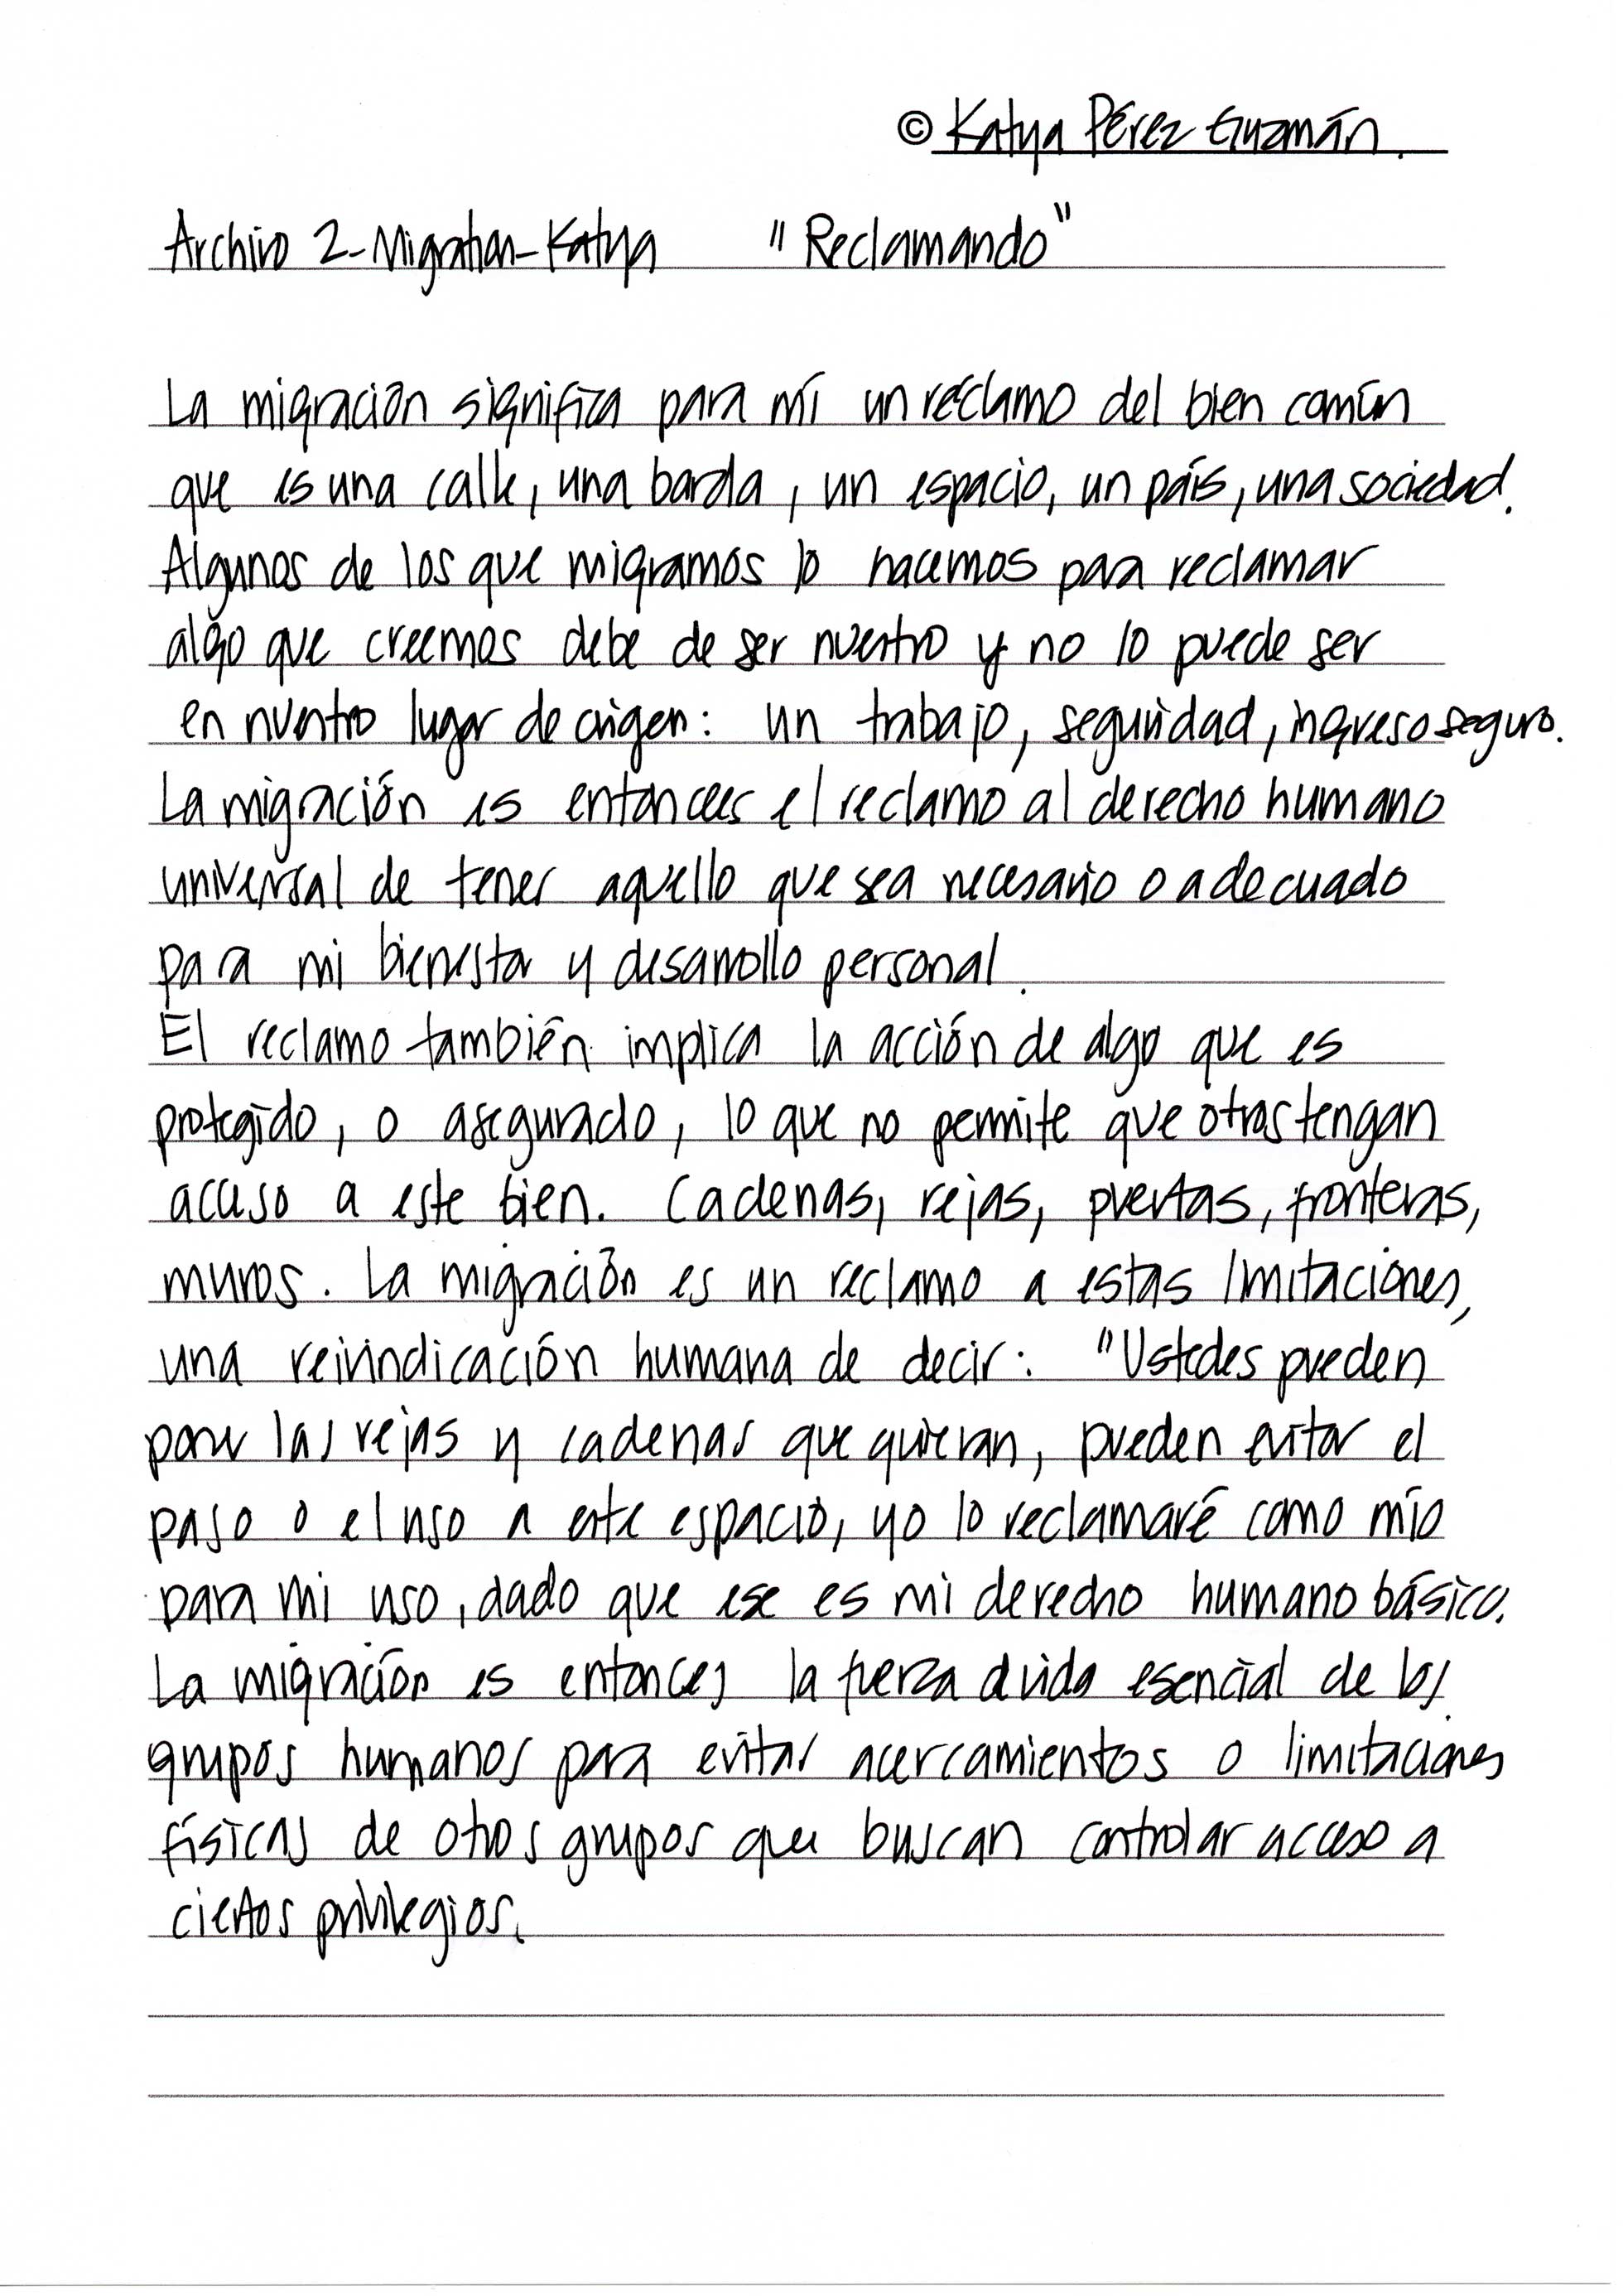 © Katya Pérez Guzmán.
Archivo 2-Migration-Katya "Reclamando"
La migración significa para mí un reclamo del bien común
que es una calle, una barda, un espacio, un país, una sociedad.
Algunos de los que migramos lo hacemos para reclamar
algo que creemos debe de ser nuestro y no lo puede ser
en nuestro lugar de origen: un trabajo, seguridad, ingreso seguro.
La migración es entonces el reclamo al derecho humano
universal de tener aquello que sea necesario o adecuado
para mi bienestar y desarrollo personal.
El reclamo también implica la acción de algo que es
protegido, o asegurado, lo que no permite que otros tengan
acceso a este bien. Cadenas, rejas, puertas, fronteras,
muros. La migración es un reclamo a estas limitaciones,
una reivindicación humana de decir: "Ustedes pueden
poner las rejas y cadenas que quieran, pueden evitar el
paso o el uso a este espacio, yo lo reclamaré como mío
para mi uso, dado que ese es mi derecho humano básico.
La migración es entonces la fuerza d vida esencial de los
grupos humanos para evitar acercamientos o limitaciones
físicas de otros grupos que buscan controlar acceso a
ciertos privilegios.